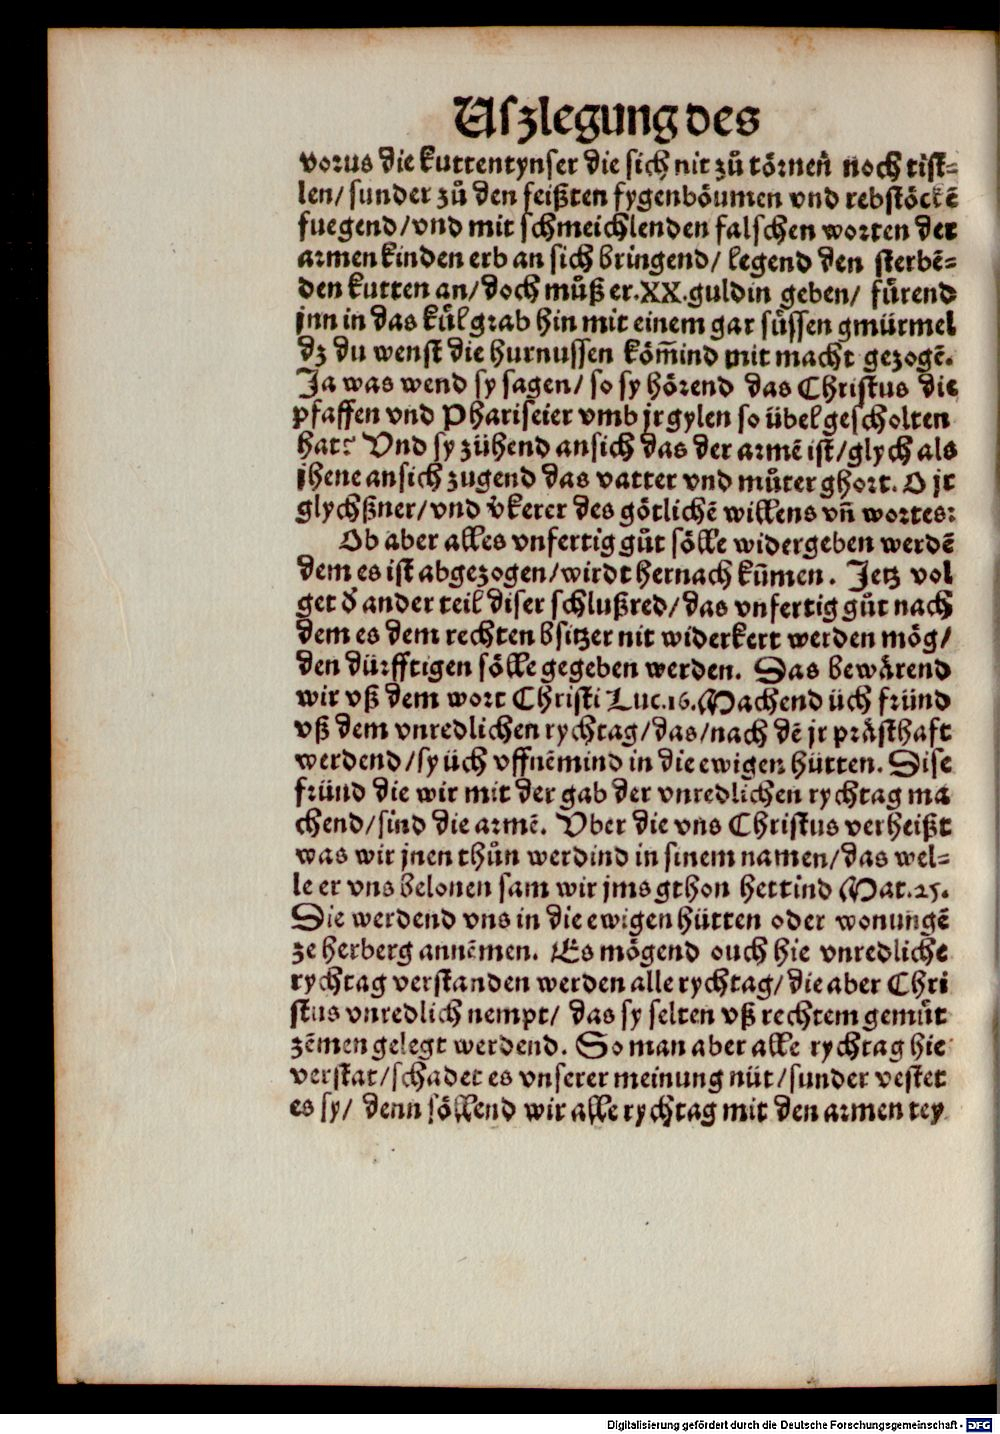 Uſzlegung des
vorus die kuttentynser die sich nit zů törnen̄ noch tist⸗
len/ sunder zů den feißten fygenböumen vnd rebstöckē
fuegend/vnd mit schmeichlenden falschen worten der
armen kinden erb an sich bringend/ legend den sterbē⸗
den kutten an/doch můß er.XX.guldin geben/ fürend
jnn in das kůl grab hin mit einem gar süssen gmürmel
dz du wenst die hurnussen köm̄ind mit macht gezogē.
Ja was wend sy sagen/ so sy hörend das Christus die
pfaffen vnd Phariseier vmb jr gylen so übel gescholten
hat? Vnd sy zühend an sich das der armē ist/glych als
jhene an sich zugend das vatter vnd můter ghort. O jr
glychßner/vnd v̓kerer des götlichē willens vn̄ wortes:
Ob aber alles vnfertig gůt sölle widergeben werdē
dem es ist abgezogen/wirdt hernach kūmen. Jetz vol
get d̓ ander teil diser schlußred/das vnfertig gůt nach
dem es dem rechten bsitzer nit widerkert werden mög/
den dürfftigen sölle gegeben werden. Das bewärend
wir vß dem wort Christi Luc.16.Machend üch fründ
vß dem vnredlichen rychtag/das/nach dē jr prästhaft
werdend/sy üch vffnēmind in die ewigen hütten. Dise
fründ die wir mit der gab der vnredlichen rychtag ma
chend/sind die armē. Vber die vns Christus verheißt
was wir jnen thůn werdind in sinem namen/das wel⸗
le er vns belonen sam wir jms gthon hettind Mat.25.
Die werdend vns in die ewigen hütten oder wonungē
ze herberg annēmen. Es mögend ouch hie vnredliche
rychtag verstanden werden alle rychtag/ die aber Chri
stus vnredlich nempt/ das sy selten vß rechtem gemůt
zēmen gelegt werdend. So man aber alle rychtag hie
verstat/schadet es vnserer meinung nüt/sunder vestet
es sy/ denn söllend wir alle rychtag mit den armen tey
Digitalisierung gefördert durch die Deutsche Forschungsgemeinschaft - DFG